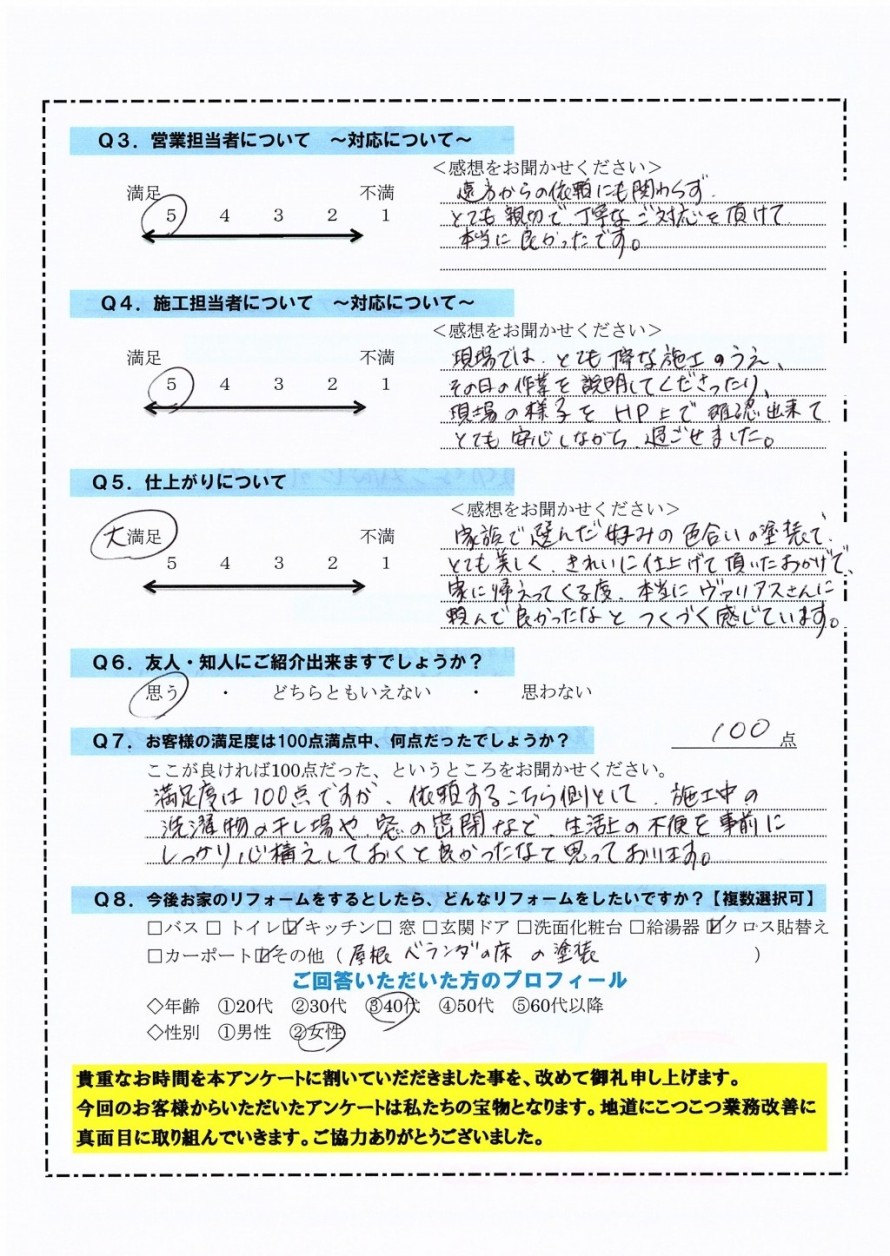 Q3．営業担当者について　～対応について～
＜感想をお聞かせください＞
満足　不満
5　4　3　2　1
遠方からの依頼にも関わらず、
とても親切で丁寧なご対応を頂けて
本当に良かったです。
Q4．施工担当者について　～対応について～
＜感想をお聞かせください＞
満足　不満
5　4　3　2　1
現場では、とても丁寧な施工のうえ、
その日の作業を説明してくださったり、
現場の様子をHP上で確認出来て
とても安心しながら、過ごせました。
Q5．仕上がりについて
＜感想をお聞かせください＞
大満足　不満
5　4　3　2　1
家族で選んだ好みの色合いの塗装で、
とても美しく、きれいに仕上げて頂いたおかげで、
家に帰えってくる度、本当にヴァリアスさんに
頼んで良かったなとつくづく感じています。
Q6．友人・知人にご紹介出来ますでしょうか？
思う　・　どちらともいえない　・　思わない
Q7．お客様の満足度は100点満点中、何点だったでしょうか？　100点
ここが良ければ100点だった、というところをお聞かせください。
満足度は100点ですが、依頼するこちら側として、施工中の
洗濯物の干し場や、窓の密閉など、生活上の不便を事前に
しっかり心構えしておくと良かったなと思っております。
Q8．今後お家のリフォームをするとしたら、どんなリフォームをしたいですか？【複数選択可】
□バス □ トイレ ☑キッチン □ 窓 □玄関ドア □洗面化粧台 □給湯器 ☑クロス貼替え
□カーポート ☑その他（屋根 ベランダの床 の塗装）
ご回答いただいた方のプロフィール
◇年齢　①20代　②30代　③40代　④50代　⑤60代以降
◇性別　①男性　②女性
貴重なお時間を本アンケートに割いていただきました事を、改めて御礼申し上げます。
今回のお客様からいただいたアンケートは私たちの宝物となります。地道にこつこつ業務改善に
真面目に取り組んでいきます。ご協力ありがとうございました。